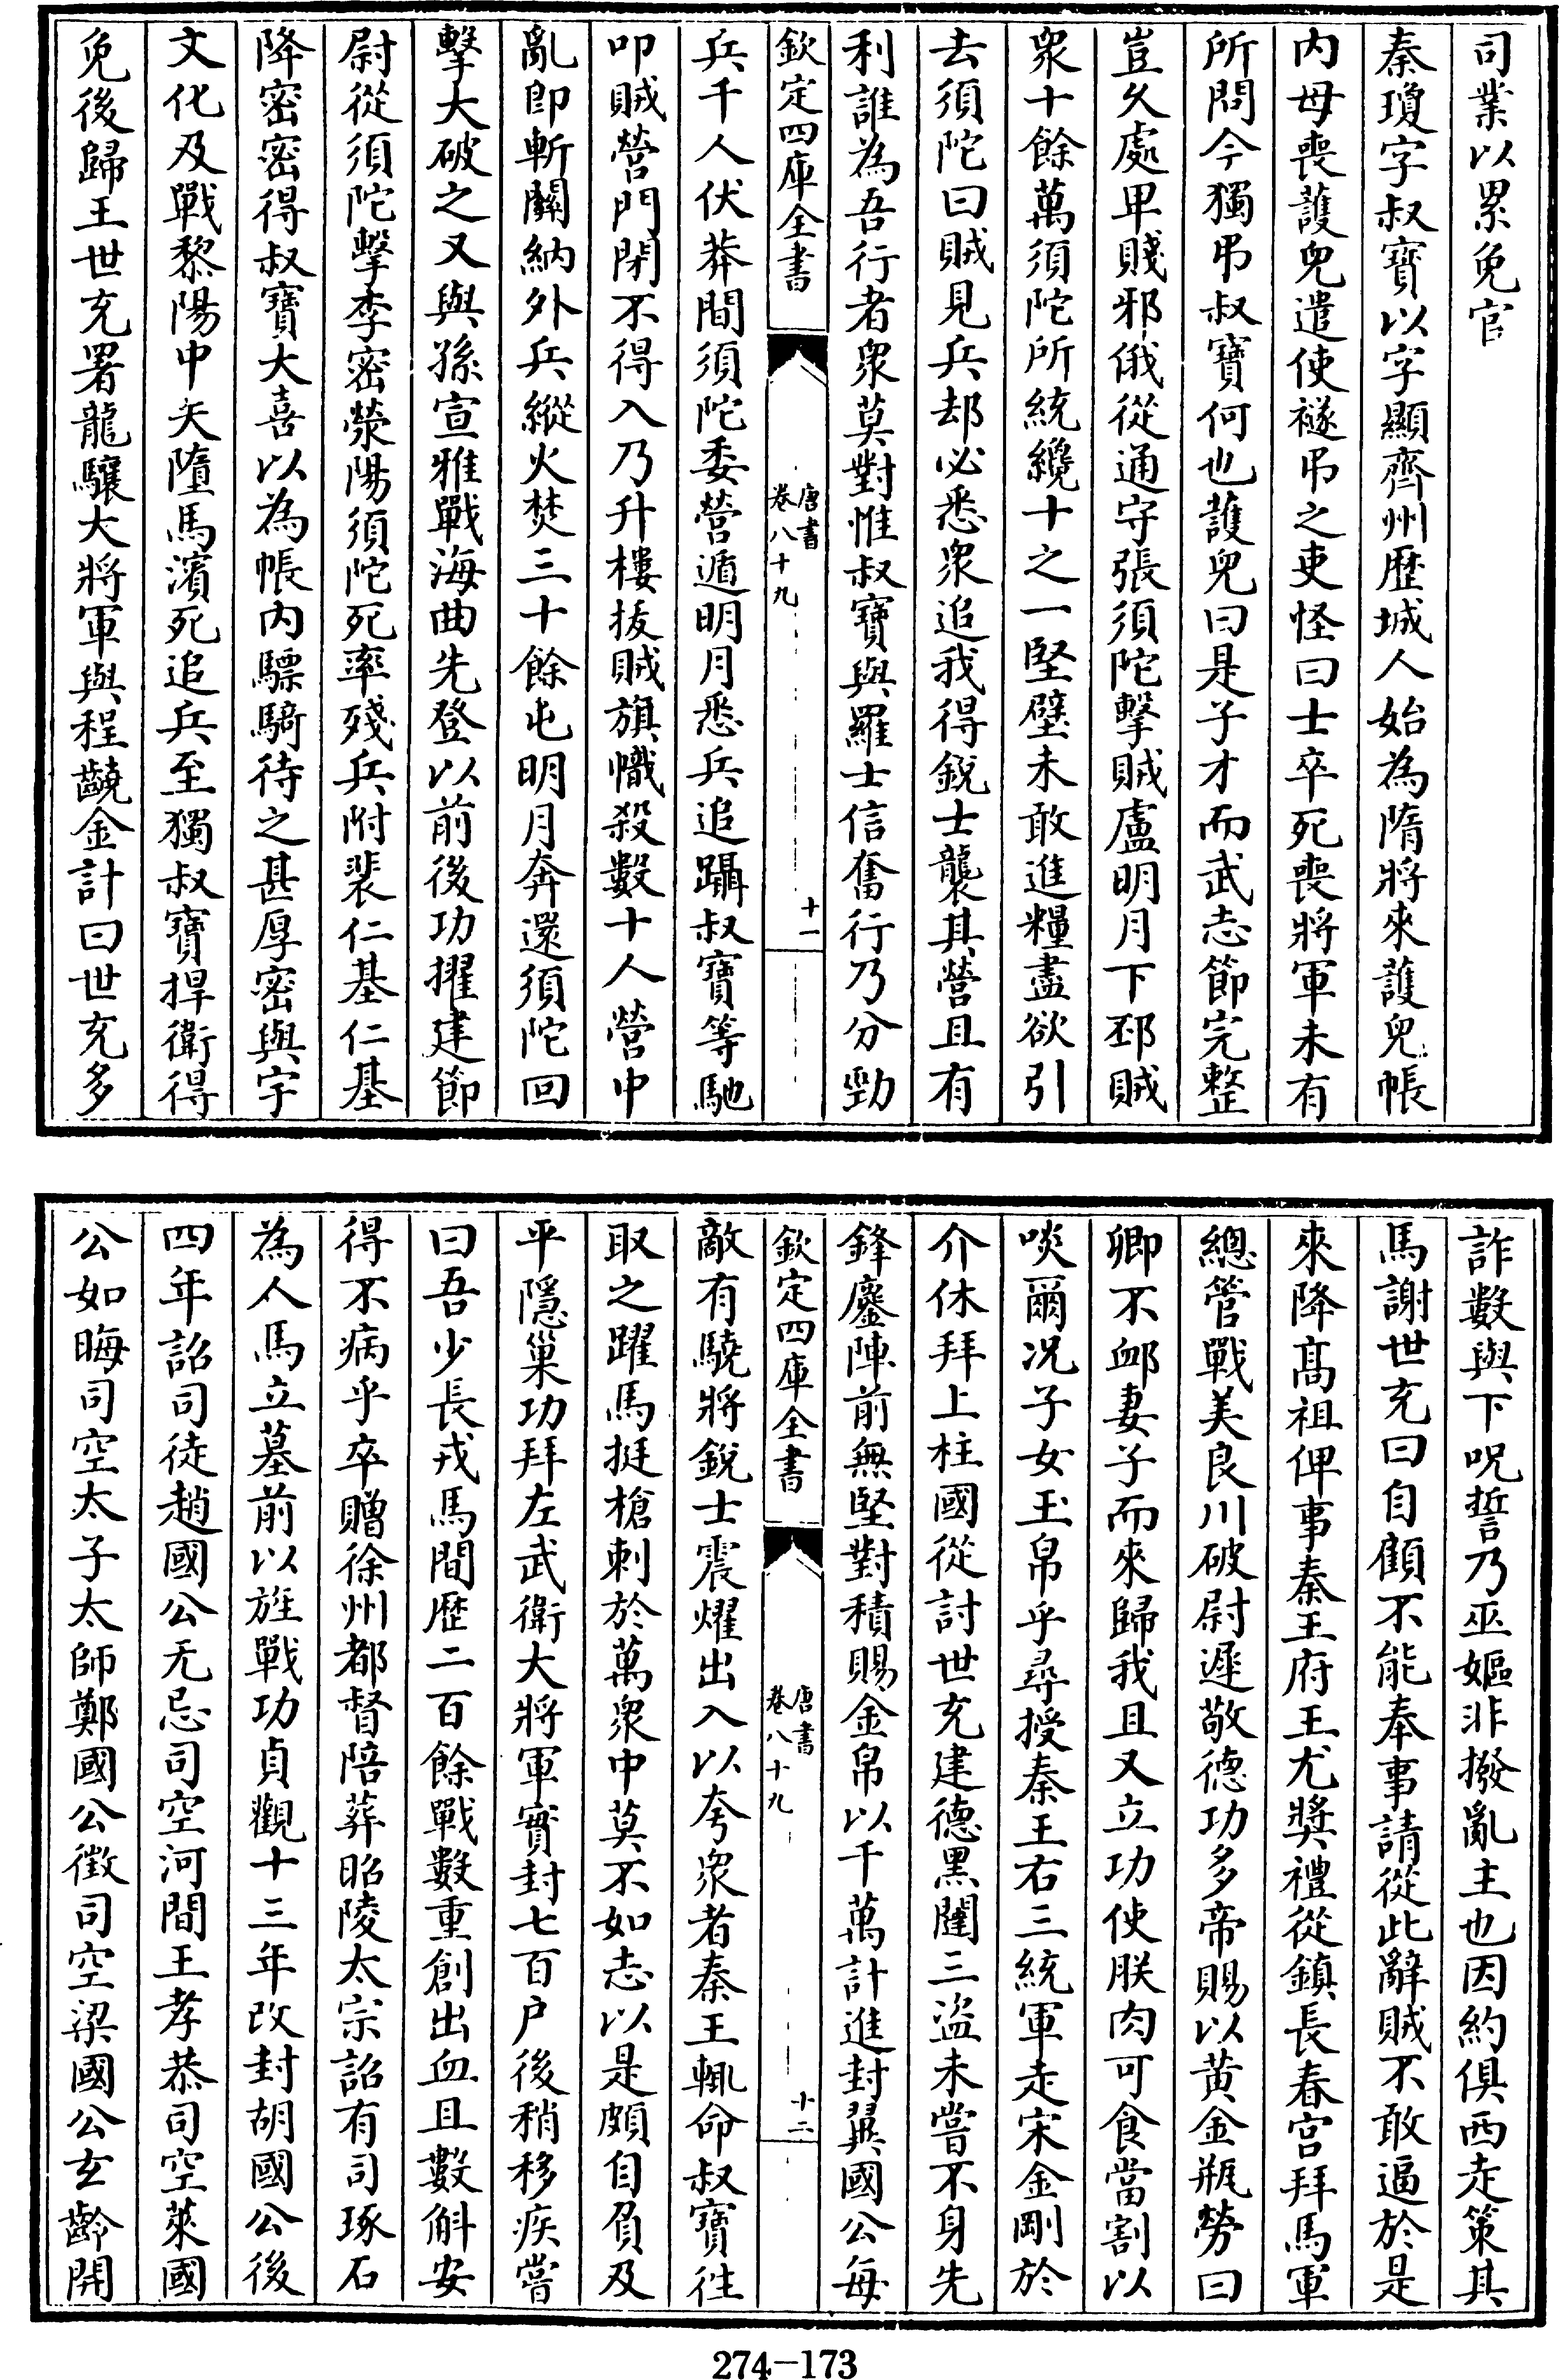 司業以累免官
秦瓊字叔寶以字顯齊州歴城人始為隋將來護兒帳
内母喪護兒遣使襚弔之吏怪曰士卒死喪將軍未有
所問今獨弔叔寶何也護兒曰是子才而武志節完整
豈久處卑賤邪俄從通守張須陀擊賊盧明月下邳賊
衆十餘萬須陀所統纔十之一堅壁未敢進糧盡欲引
去須陀曰賊見兵却必悉衆追我得銳士襲其營且有
利誰為吾行者衆莫對惟叔寶與羅士信奮行乃分勁
欽定四庫全書
唐書
卷八十九
十一
兵千人伏莽間須陀委營遁明月悉兵追躡叔寶等馳
叩賊營門閉不得入乃升樓拔賊旗幟殺數十人營中
亂即斬關納外兵縱火焚三十餘屯明月奔還須陀回
擊大破之又與孫宣雅戰海曲先登以前後功擢建節
尉從須陀擊李密滎陽須陀死率殘兵附裴仁基仁基
降密密得叔寶大喜以為帳内驃騎待之甚厚密與宇
文化及戰黎陽中矢墮馬濱死追兵至獨叔寶捍衛得
免後歸王世充署龍驤大將軍與程齩金計曰世充多
詐數與下呪誓乃巫嫗非撥亂主也因約俱西走策其
馬謝世充曰自顧不能奉事請從此辭賊不敢逼於是
來降髙祖俾事秦王府王尤獎禮從鎮長春宫拜馬軍
總管戰美良川破尉遲敬德功多帝賜以黄金瓶勞曰
卿不卹妻子而來歸我且又立功使朕肉可食當割以
啖爾况子女玉帛乎尋授秦王右三統軍走宋金剛於
介休拜上柱國從討世充建德黑闥三盜未嘗不身先
鋒鏖陣前無堅對積賜金帛以千萬計進封翼國公每
欽定四庫全書
唐書
卷八十九
十二
敵有驍將銳士震燿出入以夸衆者秦王輒命叔寶往
取之躍馬挺槍刺於萬衆中莫不如志以是頗自負及
平隱巢功拜左武衛大將軍實封七百户後稍移疾嘗
曰吾少長戎馬間歴二百餘戰數重創出血且數斛安
得不病乎卒贈徐州都督陪葬昭陵太宗詔有司琢石
為人馬立墓前以旌戰功貞觀十三年改封胡國公後
四年詔司徒趙國公无忌司空河間王孝恭司空萊國
公如晦司空太子太師鄭國公徵司空梁國公玄齡開
274-173